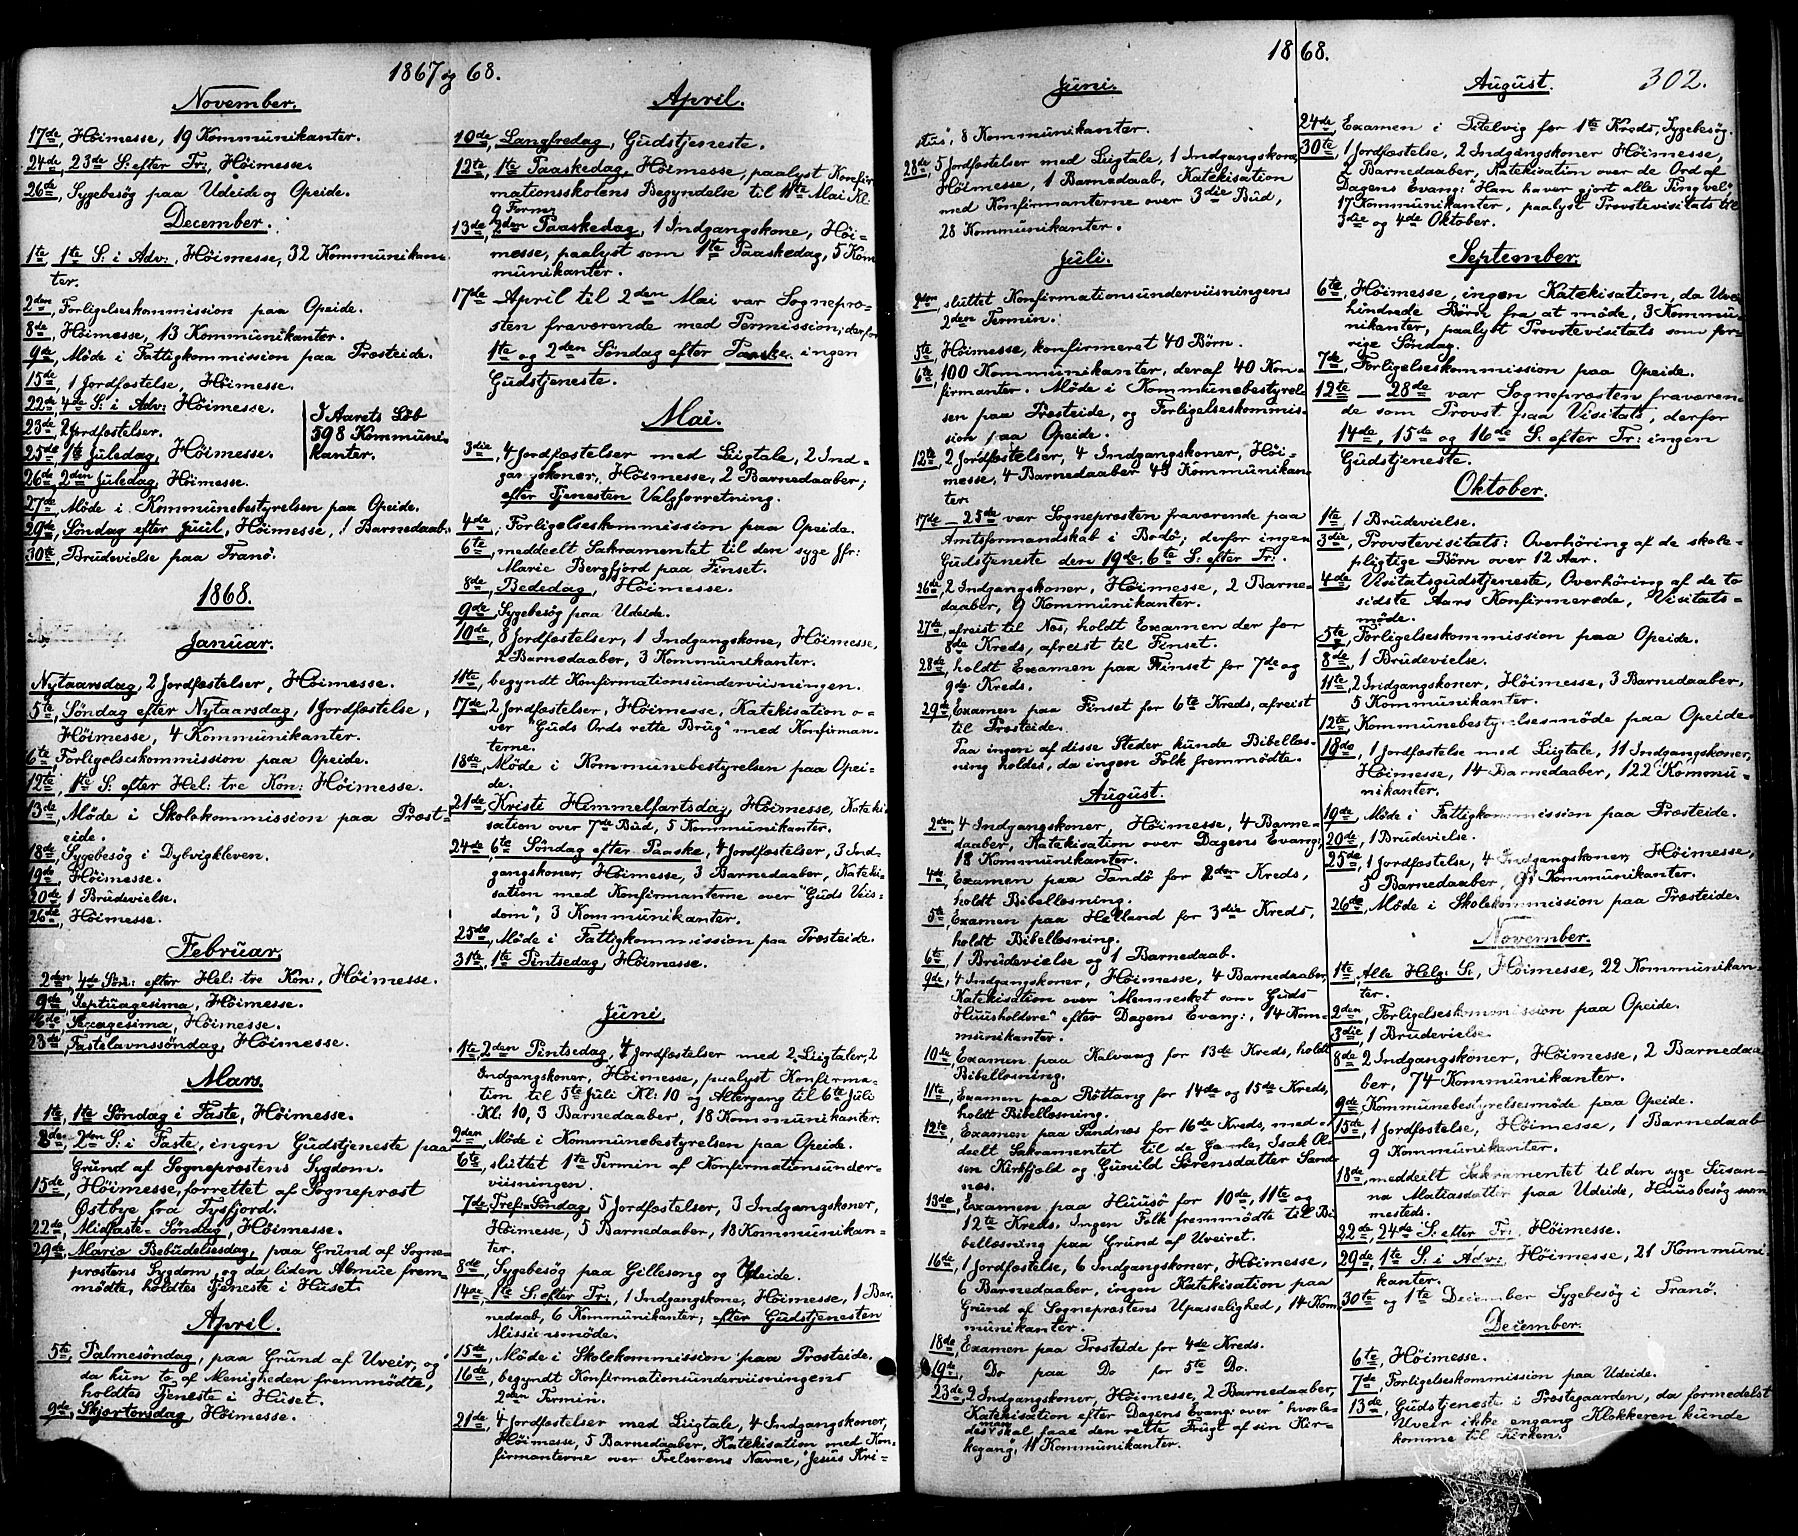 1867 og 68.
November.
17de, Höimesse, 19 Kommünikanter.
24de, 23de S: efter Tr:, Höimesse.
26de, Sygebesög paa Udeide og Opeide.
December.
1te, 1te S: i Adv:, Höimesse, 32 Kommünikan-
ter.
2den, Forligelseskommission paa Opeide.
8de, Höimesse, 13 Kommünikanter.
9de, Möde i Fattigkommission paa Præsteide.
15de, 1 Jordfæstelse, Höimesse.
22de, 4de S: i Adv: Höimesse.
23de, 2 Jordfæstelser.
25de, 1te Juledag, Höimesse.
I Aarets Löb
598 Kommüni-
kanter.
26de, 2den Juledag, Höimesse.
27de, Möde i Kommünebestyrelsen paa Opeide.
29de, Söndag efter Juul, Höimesse, 1 Barnedaab.
30te, Brüdevielse paa Tranö.
1868.
Janüar.
Nytaarsdag, 2 Jordfæstelser, Höimesse.
5te, Söndag efter Nytaarsdag, 1 Jordfæstelse,
Höimesse, 4 Kommünikanter.
6te, Forligelseskommission paa Opeide.
12te, 1te S: efter Hel: tre Kon: Höimesse.
13de, Möde i Skolekommission paa Præst-
eide.
18de, Sygebesög i Dybvigkleven.
19de, Höimesse.
20de, 1 Brüdevielse.
26de, Höimesse.
Februar.
2den, 4de Sön: efter Hel: tre Kon:, Höimesse.
9de, Septüagesima, Höimesse.
16de, Sexagesima, Höimesse.
23de, Fastelavnssöndag, Höimesse.
Mars.
1te, 1te Söndag i Faste, Höimesse.
8de, 2den S: i Faste, ingen Güdstjeneste paa
Gründ af Sognepræstens Sygdom.
15de, Höimesse, forrettet af Sognepræst
Østbye fra Tysfjord.
22de, Midfaste-Söndag, Höimesse.
29de, Mariæ Bebüdelsesdag, paa Gründ af Sogne-
præstens Sygdom, og da liden Almüe frem-
mödte, holdtes Tjeneste i Hüset.
April.
5te, Palmesöndag, paa Gründ af Uveir, og
da kün to af Menigheden fremmödte,
holdtes Tjeneste i Hüset.
9de, Skjærtorsdag, Höimesse.
April.
10de, Langfredag, Güdstjeneste.
12te, 1te Paaskedag, Höimesse, paalyst Konfir-
mationsskolens Begyndelse til 11te Mai Kl:
9 Form:
13de, 2den Paaskedag, 1 Indgangskone, Höi-
messe, paalyst som 1te Paaskedag, 5 Kom-
münikanter.
17de April til 2den Mai var Sognepræ-
sten fraværende med Permission; derfor
1te og 2den Söndag efter Paaske ingen
Gudstjeneste.
Mai.
3die, 4 Jordfæstelser med Liigtale, 2 Ind-
gangskoner, Höimesse, 2 Barnedaaber;
efter Tjenesten Valgforretning.
4de, Forligelseskommission paa Opeide.
6te, meddeelt Sakramentet til den syge Jfr:
Marie Bergfjord paa Finset.
8de, Bededag, Höimesse.
9de, Sygebesög paa Udeide.
10de, 8 Jordfæstelser, 1 Indgangskone, Höimesse,
2 Barnedaaber, 3 Kommünikanter.
11te, begyndt Konfirmationsunderviisningen.
17de, 2 Jordfæstelser, Höimesse, Katekisation o-
ver "Guds Ords rette Brug" med Konfirman-
terne.
18de, Möde i Kommünebestyrelsen paa Opei-
de.
21de, Kristi Himmelfartsdag, Höimesse, Kateki-
sation over 7de Bud, 5 Kommünikanter.
24de, 6te Söndag efter Paaske, 4 Jordfæstelser, 3 Ind-
gangskoner, Höimesse, 3 Barnedaaber, Kateki-
sation med Konfirmanterne over "Guds Viis-
dom", 3 Kommünikanter.
25de, Möde i Fattigkommission paa Præsteide.
31te, 1te Pintsedag, Höimesse.
Jüni
1te, 2den Pintsedag, 4 Jordfæstelser med 2 Liigtaler, 2
Indgangskoner, Höimesse, paalyst Konfirma-
tion til 5te Juli Kl: 10 og Altergang til 6te Juli
Kl: 10, 3 Barnedaaber, 18 Kommünikanter.
2den, Möde i Kommünebestyrelsen paa Opeide.
6te, slüttet 1te Termin af Konfirmationsunder-
viisningen.
7de, Tref-Söndag 5 Jordfæstelser, 3 Indgangskoner,
Höimesse, 5 Barnedaaber, 18 Kommünikan-
ter.
8de, Sygebesög paa Gillesong og Opeide.
14de, 1te S: efter Tr:, 1 Indgangskone, Höimesse, 1 Bar-
nedaab, 6 Kommünikanter; efter Güdstjenesten
Missionsmöde.
15de, Möde i Skolekommission paa Præsteide.
16de, begyndt Konfirmationsunderviisningens
2den Termin.
21de, 4 Jordfæstelser med Liigtale, 4 Indgangskoner,
Höimesse, 5 Barnedaaber, Katekisation med Kon-
firmanterne over Frelserens Navne, "Jesus Kri-
1868.
302.
Jüni.
stus", 8 Kommünikanter.
28de, 5 Jordfæstelser med Liigtale, 1 Indgangskone,
Höimesse, 1 Barnedaab, Katekisation
med Konfirmanterne over 3die Bud,
28 Kommünikanter.
Juli.
2den, slüttet Konfirmationsunderviisningens
2den Termin.
5te, Höimesse, konfirmeret 40 Börn.
6te, 100 Kommünikanter, deraf 40 Kon-
firmanter. Möde i Kommünebestyrel-
sen paa Præsteide, og Forligelseskommis-
sion paa Opeide.
12te, 2 Jordfæstelser, 4 Indgangskoner, Höi-
messe, 4 Barnedaaber 43 Kommünikan-
ter.
17de – 25de var Sognepræsten fraværende paa
Amtsformandskab i Bodö; derfor ingen
Güdstjeneste den 19de, 6te S: efter Tr:.
26de, 2 Indgangskoner, Höimesse, 2 Barne-
daaber, 9 Kommünikanter.
27te, afreist til Nes, holdt Examen der for
8de Kreds, afreist til Finset.
28de, holdt Examen paa Finset for 7de og
9de Kreds.
29de, Examen paa Finset for 6te Kreds, afreist
til Præsteide.
Paa ingen af disse Steder künde Bibellæs-
ning holdes, da ingen Folk fremmödte.
August.
2den, 4 Indgangskoner, Höimesse, 4 Barne-
daaber, Katekisation over Dagens Evang:,
18 Kommünikanter.
4de, Examen paa Tandö for 2den Kreds,
holdt Bibellæsning.
5te, Examen paa Helland for 3die Kreds,
holdt Bibellæsning.
6te, 1 Brüdevielse og 1 Barnedaab.
9de, 4 Indgangskoner, Höimesse, 4 Barnedaaber,
Katekisation over "Mennesket som Guds
Huusholdere" efter Dagens Evang:, 14 Kom-
münikanter.
10de, Examen paa Kalvaag for 13de Kreds, holdt
Bibellæsning.
11te, Examen paa Röttang for 14de og 15de Kreds,
holdt Bibellæsning.
12te, Examen paa Sandnæs for 16de Kreds, med-
deelt Sakramentet til de Gamle, Isak Ol-
sen Kirkfjeld og Gunild Sörensdatter Sand-
næs.
13de, Examen paa Huusö for 10de, 11te og
12te Kreds. Ingen Folk fremmödte til Bi-
bellæsning paa Grund af Uveiret.
16de, 1 Jordfæstelse, 6 Indgangskoner, Höimesse,
6 Barnedaaber, ingen Katekisation paa
Gründ af Sognepræstens Upasselighed, 14 Kom-
münikanter.
18de, Examen paa Præsteide for 4de Kreds.
19de, Do paa Do for 5te Do.
23de, 2 Indgangskoner, Höimesse, 2 Barnedaaber,
Katekisation efter Dagens Evang: over "hvorle-
des man skal faae den rette Frugt af sin Kir-
kegang", 11 Kommünikanter.
August.
24de, Examen i Titelvig for 1te Kreds, Sygebesög.
30te, 1 Jordfæstelse, 2 Indgangskoner Höimesse,
2 Barnedaaber, Katekisation over de Ord af
Dagens Evang: "Han haver gjort alle Ting vel",
17 Kommünikanter, paalyst Provstevisitats til
3die og 4de Oktober.
September.
6te, Höimesse, ingen Katekisation, da Uveir
hindrede Börn fra at möde, 3 Kommü-
nikanter, paalyst Provstevisitats som for-
rige Söndag.
7de, Forligelseskommission paa Opeide.
12te – 28de var Sognepræsten fraværen-
de som Provst paa Visitats, derfor
14de, 15de og 16de S: efter Tr: ingen
Güdstjeneste.
Oktober.
1te, 1 Brüdevielse.
3die, Provstevisitats: Overhöring af de skole-
pligtige Börn over 12 Aar.
4de, Visitatsgüdstjeneste, Overhöring af de to
sidste Aars Konfirmerede, Visitats-
möde.
5te, Forligelseskommission paa Opeide.
8de, 1 Brüdevielse.
11te, 2 Indgangskoner, Höimesse, 3 Barnedaaber,
5 Kommünikanter.
12te, Kommünebestyrelsesmöde paa Opeide.
18de, 1 Jordfæstelse med Liigtale, 11 Indgangskoner,
Höimesse, 14 Barnedaaber, 122 Kommü-
nikanter.
19de, Möde i Fattigkommission paa Præsteide.
20de, 1 Brüdevielse.
25de, 1 Jordfæstelse, 4 Indgangskoner, Höimesse,
5 Barnedaaber, 91 Kommünikanter.
26de, Möde i Skolekommission paa Præsteide.
November.
1te, Alle Helg: S:, Höimesse, 22 Kommünikan-
ter.
2den, Forligelseskommission paa Opeide.
3die, 1 Brüdevielse
8de 2 Indgangskoner, Höimesse, 2 Barnedaa-
ber, 74 Kommünikanter.
9de, Kommünebestyrelsesmöde paa Opeide.
15de, 1 Jordfæstelse, Höimesse, 1 Barnedaab
9 Kommünikanter.
18de, meddeelt Sakramentet til den syge Susan-
na Matiasdatter paa Udeide, Huusbesög sam-
mesteds.
22de, 24de S: efter Tr: Höimesse.
29de, 1te S: i Adv: Höimesse, 21 Kommüni-
kanter.
30te og 1te December Sygebesög i Tranö.
December.
6te, Höimesse.
7de, Forligelseskommission paa Udeide.
13de, Güdstjeneste i Præstegaarden, da formedelst
Uveir ikke engang Klokkeren kunde
komme til Kirken.